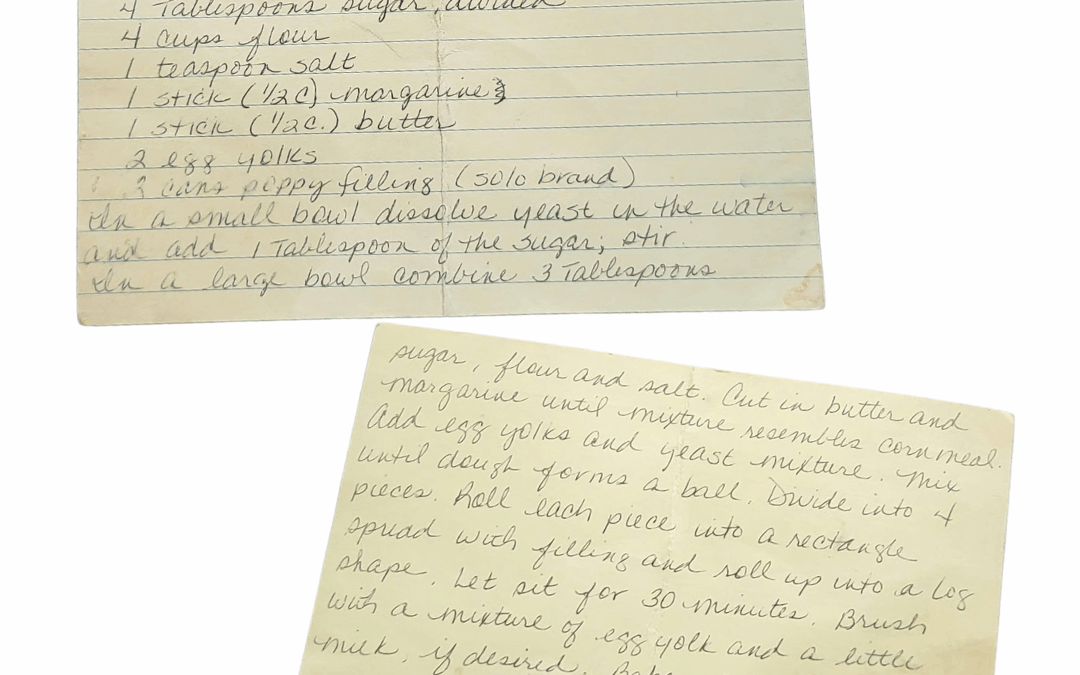 4 Tablespoons sugar, divided
4 cups flour
1 teaspoon salt
1 stick (1/2 C) margarine
1 stick (1/2 c.) butter
2 egg yolks
3 cans poppy filling (solo brand)
In a small bowl dissolve yeast in the water
and add 1 Tablespoon of the sugar; stir.
In a large bowl combine 3 Tablespoons
sugar, flour and salt. Cut in butter and
margarine until mixture resembles cornmeal.
Add egg yolks and yeast mixture. Mix
until dough forms a ball. Divide into 4
pieces. Roll each piece into a rectangle
spread with filling and roll up into a log
shape. Let sit for 30 minutes. Brush
with a mixture of egg yolk and a little
milk, if desired.